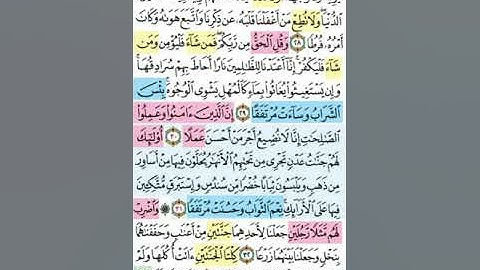 ٱلدُّنْيَا ۖ وَلَا تُطِعْ مَنْ أَغْفَلْنَا قَلْبَهُۥ عَن ذِكْرِنَا وَٱتَّبَعَ هَوَىٰهُ وَكَانَ
أَمْرُهُۥ فُرُطًا ٢٨ وَقُلِ ٱلْحَقُّ مِن رَّبِّكُمْ ۖ فَمَن شَآءَ فَلْيُؤْمِن وَمَن
شَآءَ فَلْيَكْفُرْ ۚ إِنَّآ أَعْتَدْنَا لِلظَّٰلِمِينَ نَارًا أَحَاطَ بِهِمْ سُرَادِقُهَا ۚ
وَإِن يَسْتَغِيثُوا۟ يُغَاثُوا۟ بِمَآءٍ كَٱلْمُهْلِ يَشْوِى ٱلْوُجُوهَ ۚ بِئْسَ
ٱلشَّرَابُ وَسَآءَتْ مُرْتَفَقًا ٢٩ إِنَّ ٱلَّذِينَ ءَامَنُوا۟ وَعَمِلُوا۟
ٱلصَّٰلِحَٰتِ إِنَّا لَا نُضِيعُ أَجْرَ مَنْ أَحْسَنَ عَمَلًا ٣٠ أُو۟لَٰٓئِكَ
لَهُمْ جَنَّٰتُ عَدْنٍ تَجْرِى مِن تَحْتِهِمُ ٱلْأَنْهَٰرُ يُحَلَّوْنَ فِيهَا مِنْ أَسَاوِرَ
مِن ذَهَبٍ وَيَلْبَسُونَ ثِيَابًا خُضْرًا مِّن سُندُسٍ وَإِسْتَبْرَقٍ مُّتَّكِـِٔينَ
فِيهَا عَلَى ٱلْأَرَآئِكِ ۚ نِعْمَ ٱلثَّوَابُ وَحَسُنَتْ مُرْتَفَقًا ٣١ ۞ وَٱضْرِبْ
لَهُم مَّثَلًا رَّجُلَيْنِ جَعَلْنَا لِأَحَدِهِمَا جَنَّتَيْنِ مِنْ أَعْنَٰبٍ وَحَفَفْنَٰهُمَا
بِنَخْلٍ وَجَعَلْنَا بَيْنَهُمَا زَرْعًا ٣٢ كِلْتَا ٱلْجَنَّتَيْنِ ءَاتَتْ أُكُلَهَا وَلَمْ